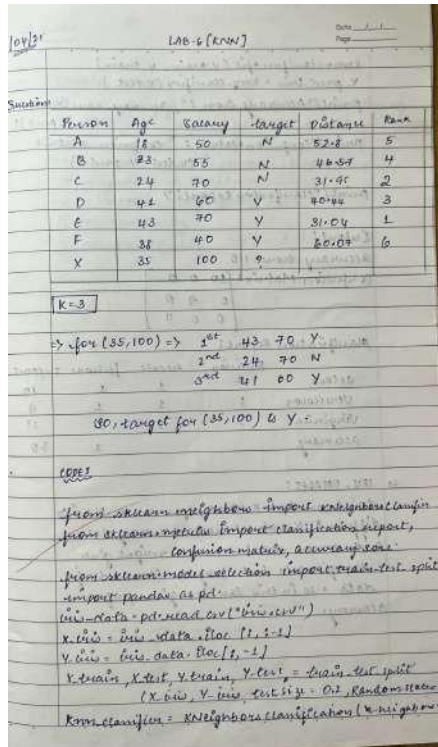 LAB-6 [KNN]
Date
Page
Question
Person Age Salary target Distance Rank
A 18 50 N 52.8 5
B 23 55 N 46.57 4
C 24 70 N 31.95 2
D 41 60 Y 40.44 3
E 43 70 Y 31.04 1
F 38 40 Y 60.07 6
X 35 100 ?
K=3
=> for (35,100) => 1st 43 70 Y
2nd 24 70 N
3rd 41 60 Y
SO, target for (35,100) is Y
CODE:
from sklearn neighbors import KNeighborsClassifier
from sklearn.metrics import classification report,
confusion matrix, accuracy score
from sklearn.model_selection import train-test split
import pandas as pd
iris-data = pd.read_csv("iris.csv")
X.iris = iris_data.iloc [:, :-1]
Y.iris = iris_data.iloc[:, -1]
X train, X test, Y train, Y test = train-test split
(X.iris, Y-iris, test size = 0.2, Random state
Knn_classifier = KNeighbors classification (n_neighbors